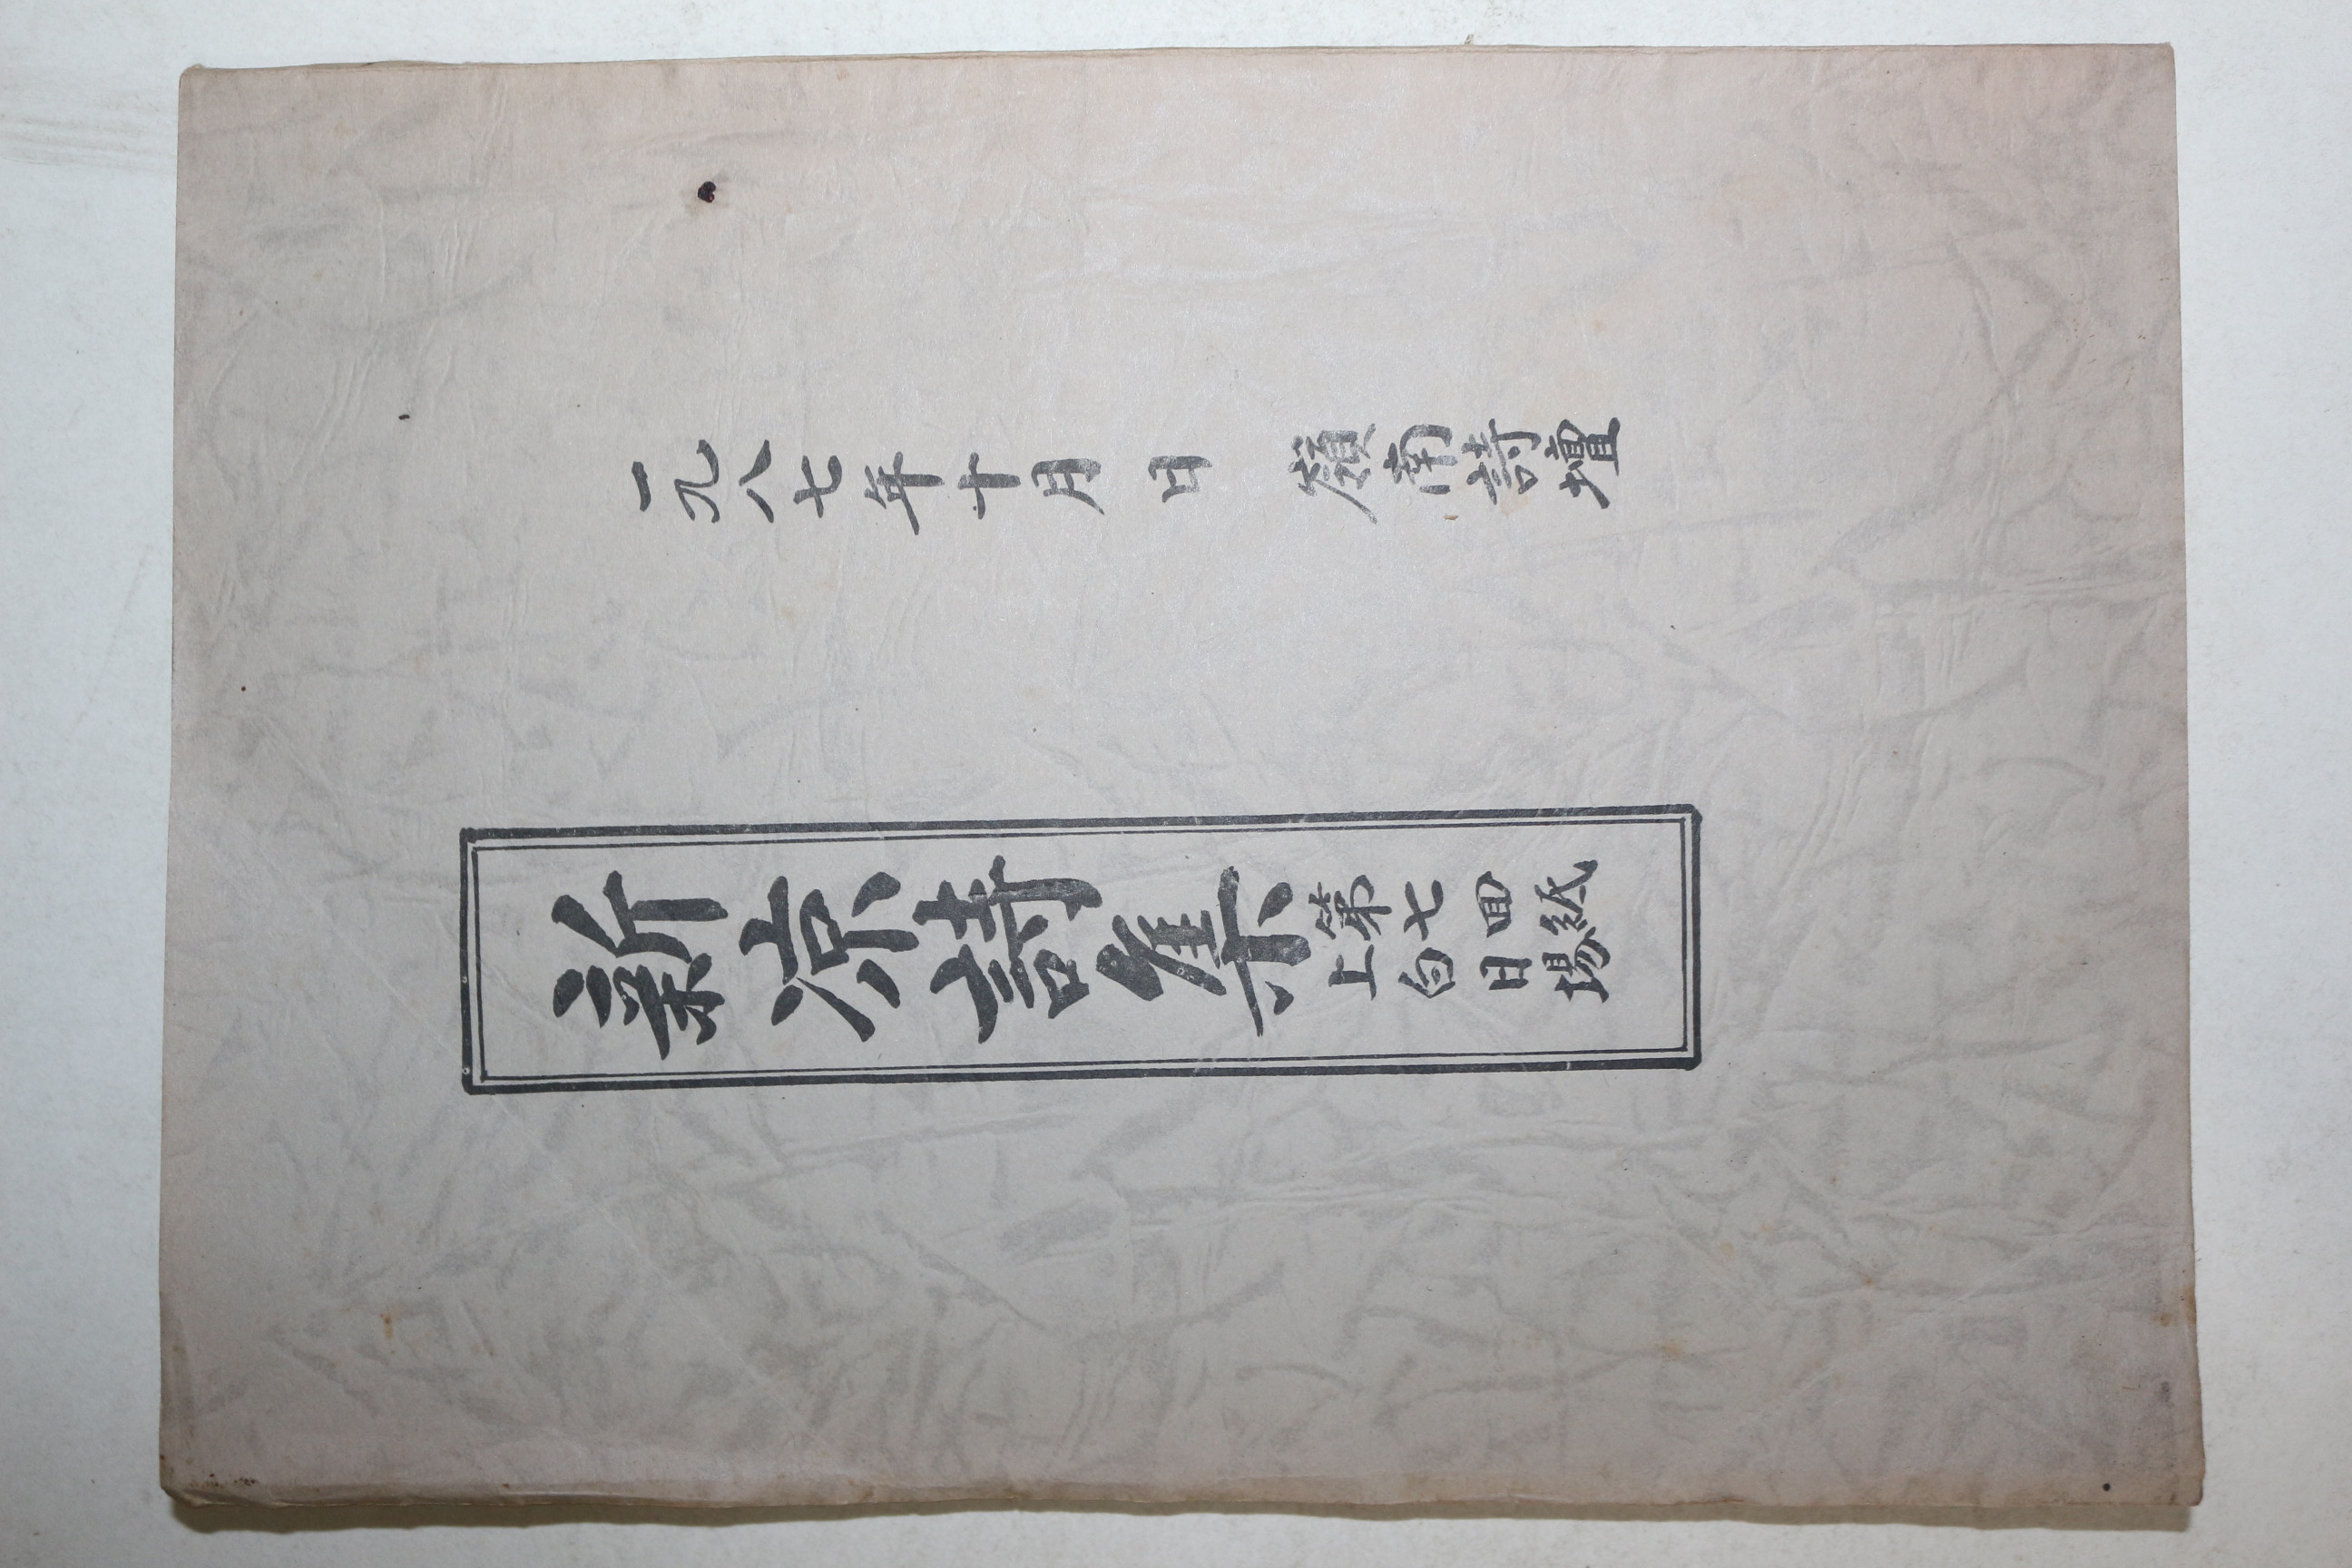 一九八七年十月 日 嶺南詩壇
新凉詩集
第七回紙
上白日場